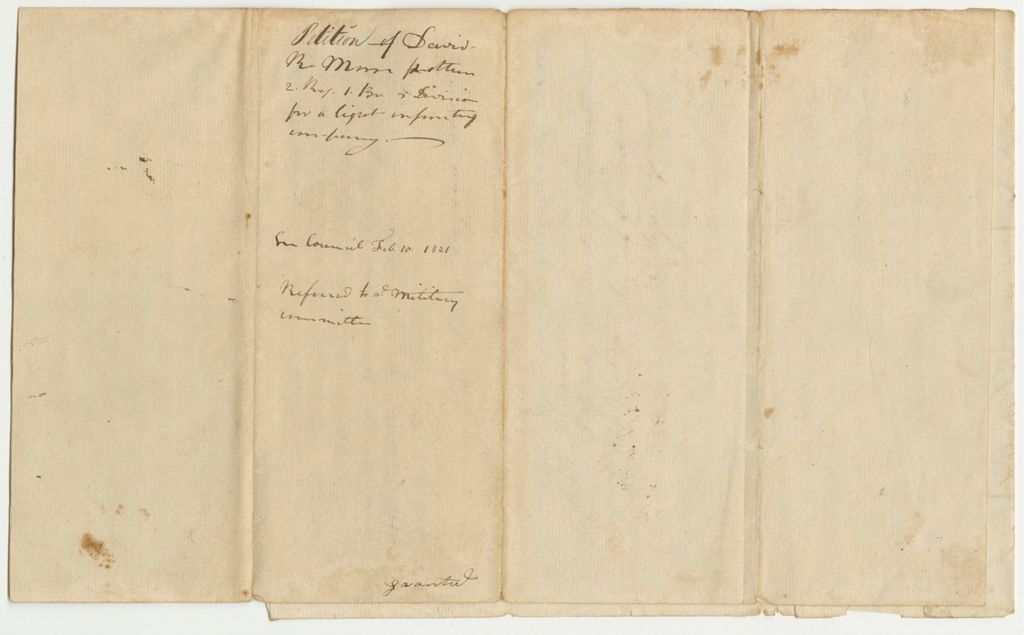 Petition of David
R Morse & others
2. Reg. 1. Br. 5 Division
for a light infantry
company.
In Council Feb. 10. 1821
Referred to ye Military
committee
granted